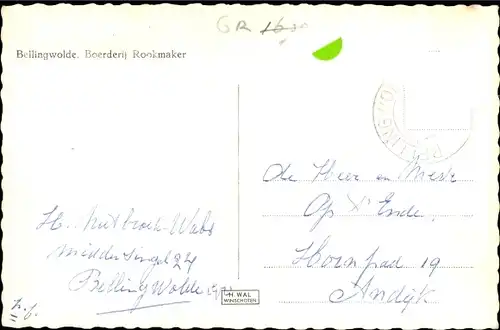 GR 1630
Bellingwolde. Boerderij Rookmaker
de Heer en Mevr
Op 't Ende,
Hoornpad 19
Andijk
H. Nutbroek-Wubs
Middensingel 24
Bellingwolde
p.f.
H. WAL
WINSCHOTEN
BELLING